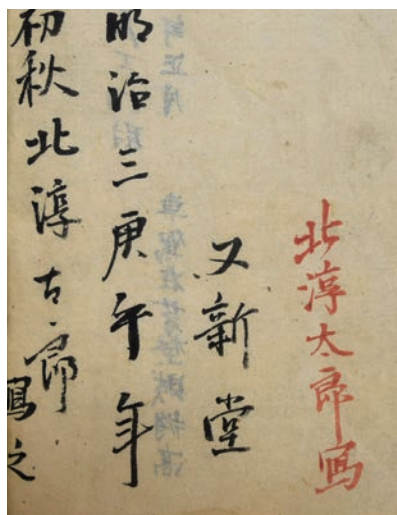 北淳太郎冩
又新堂
明治三庚午年
初秋北淳古郎冩之